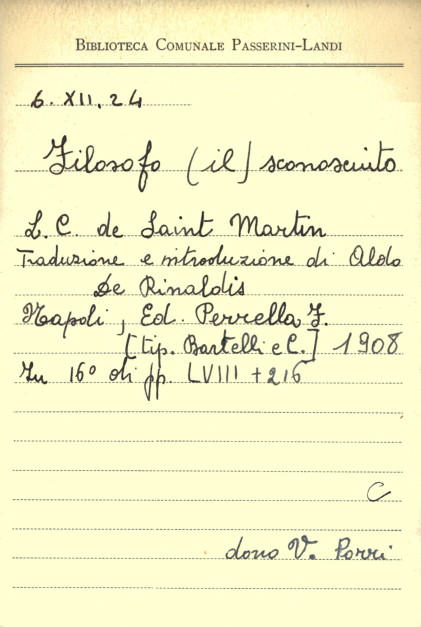 BIBLIOTECA COMUNALE PASSERINI-LANDI
6. XII. 24
Filosofo (il) sconosciuto
L. C. de Saint Martin
Traduzione e introduzione di Aldo
De Rinaldis
Napoli, Ed. Perrella F.
[tip. Bartelli e C.] 1908
In 16° di pp. LVIII + 216
C
dono V. Porri